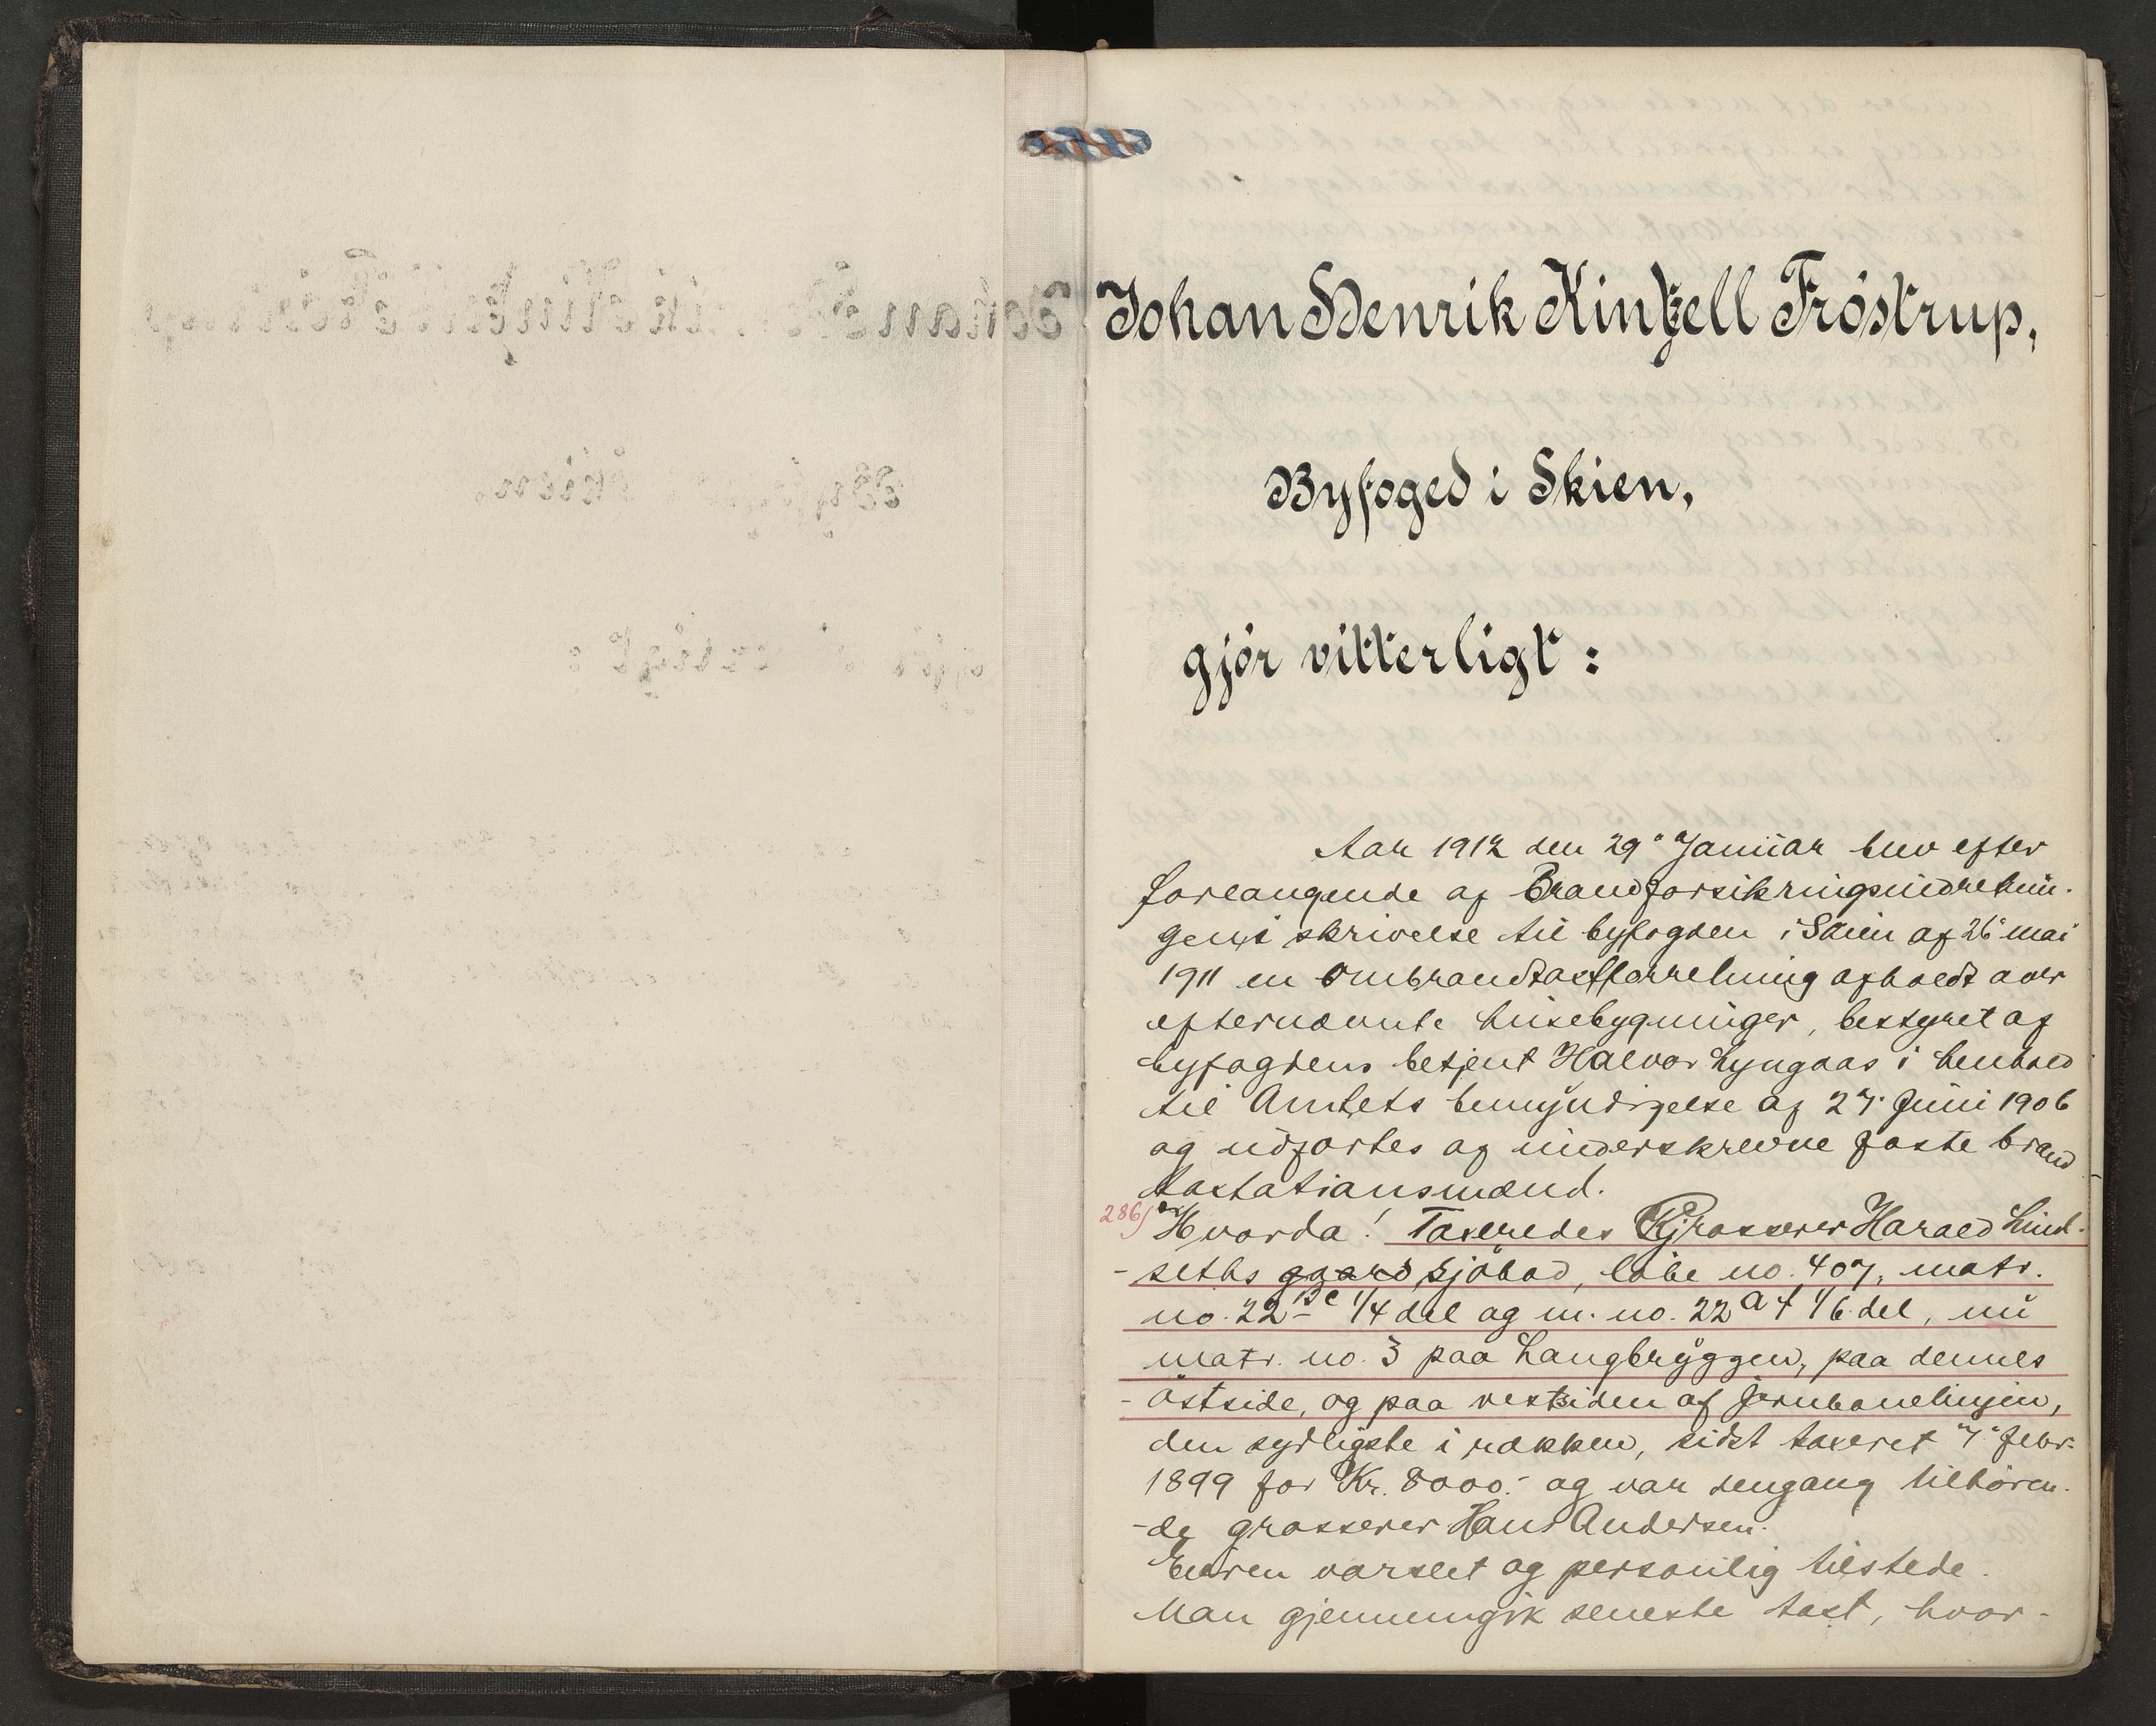 Johan Henrik Kintzell Fröstrup,
Byfoged i Skien,
gjör vitterligt:
Aar 1912 den 29' Januar blev efter
forlangende af Brandforsikringsindretnin-
gens skrivelse til byfogden i Skien af 26' mai
1911 en Ombrandtaxtforretning afholdt over
efternævnte husebygninger, bestyret af
byfogdens betjent Halvor Lyngaas i henhold
til Amtets bemyndigelse af 27' Juni 1906
og udførtes af underskrevne faste brand
taxtationsmænd.
286) Hvorda! Taxeredes Grosserer Harald Lind-
- seths gaard, sjöbod, löbe no. 407, matr.
no. 22 Bc 1/4 del og m. no. 22 a f 1/6 del, nu
matr. no. 3 paa Langbryggen, paa dennes
- östside, og paa vestsiden af Jernbanelinjen,
den sydligste i rækken, sidst taxeret 7' febr:
1899 for Kr. 8000.- og var dengang tilhören-
- de grosserer Hans Andersen.
Eieren varslet og personlig tilstede.
Man gjennemgik seneste taxt, hvor-